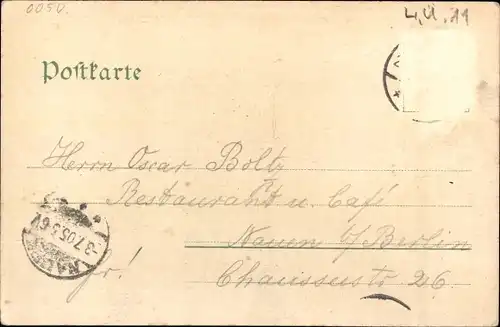 0050.
4.U.11
Postkarte
Herrn Oscar Boltz
Restaurant u. Café
Nauen b/Berlin
Chausseestr 26
Fr!
3.7.05.5-6V